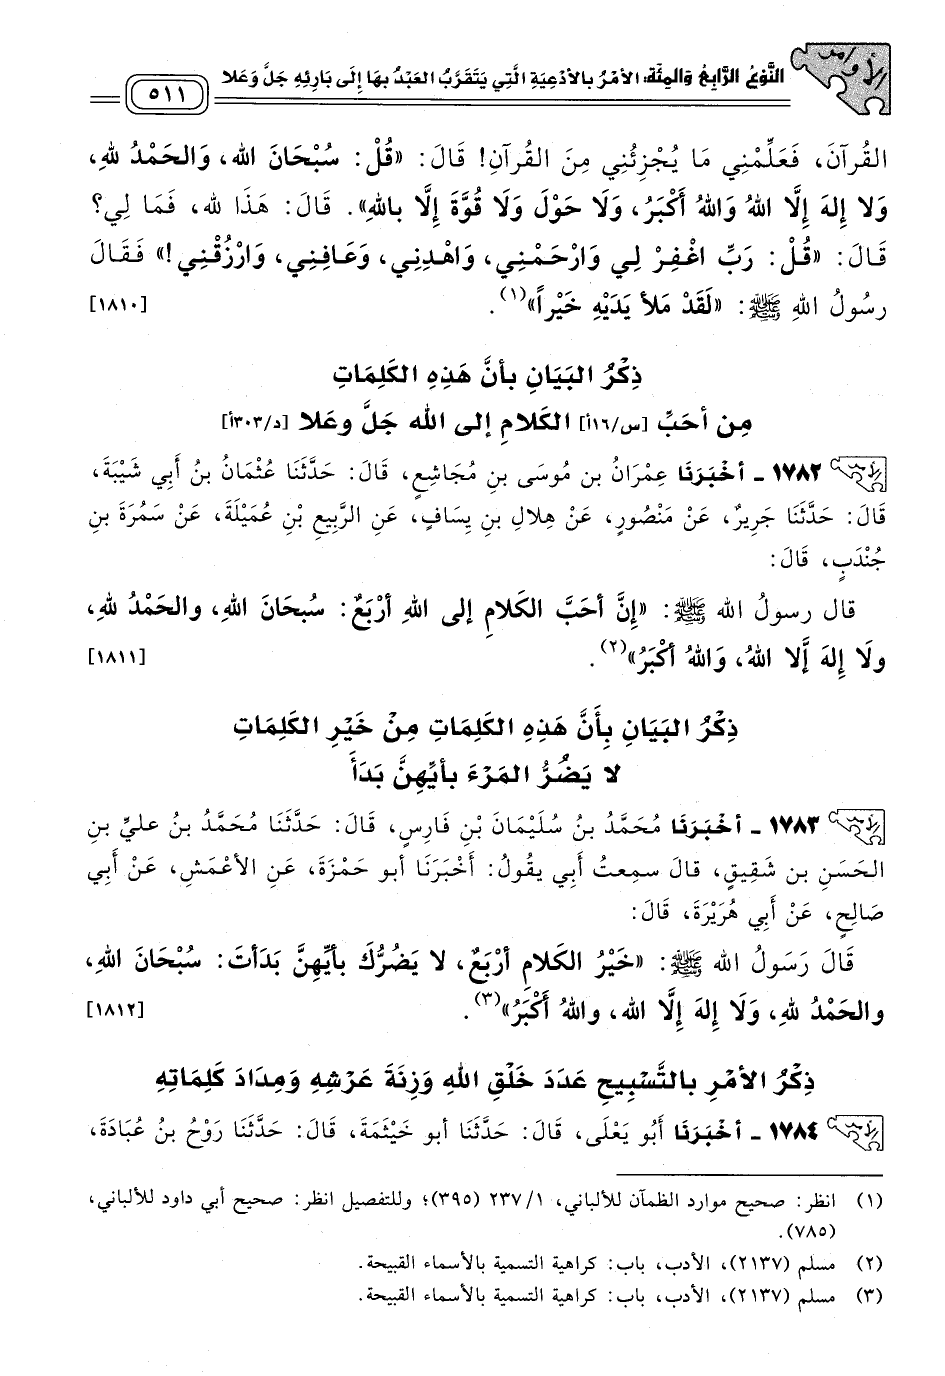 الأوامر
النَّوْعُ الرَّابِعُ وَالمِئَة: الأَمْرُ بِالأَدْعِيَةِ الَّتِي يَتَقَرَّبُ العَبْدُ بِهَا إِلَى بَارِئِهِ جَلَّ وَعَلا
٥١١
القُرآنَ، فَعَلِّمْنِي مَا يُجْزِئُنِي مِنَ القُرآنِ! قَالَ: «قُلْ: سُبْحَانَ اللهِ، وَالحَمْدُ للهِ،
وَلا إِلهَ إِلَّا اللهُ وَاللهُ أَكْبَرُ، وَلَا حَوْلَ وَلَا قُوَّةَ إِلَّا بِاللهِ». قَالَ: هَذَا للهِ، فَمَا لِي؟
قَالَ: «قُلْ: رَبِّ اغْفِرْ لِي وَارْحَمْنِي، وَاهْدِنِي، وَعَافِنِي، وَارْزُقْنِي!» فَقَالَ
رسُولُ اللهِ ﷺ: «لَقَدْ مَلأَ يَدَيْهِ خَيْراً»(١). [١٨١٠]
ذِكْرُ البَيَانِ بأنَّ هَذِهِ الكَلِمَاتِ
مِن أحَبِّ [س/١٦أ] الكَلامِ إلى الله جَلَّ وعَلا [د/٣٠٣أ]
١٧٨٢ - أخْبَرَنَا عِمْرَانُ بن مُوسَى بنِ مُجَاشِعٍ، قَالَ: حَدَّثَنَا عُثْمَانُ بنُ أَبي شَيْبَةَ،
قَالَ: حَدَّثَنَا جَرِيرٌ، عَنْ مَنْصُورٍ، عَنْ هِلالِ بنِ يِسَافٍ، عَنِ الرَّبِيعِ بْنِ عُمَيْلَةَ، عَنْ سَمُرَةَ بنِ
جُنْدَبٍ، قَالَ:
قال رسولُ الله ﷺ: «إِنَّ أحَبَّ الكَلامِ إلى اللهِ أرْبَعٌ: سُبحَانَ اللهِ، والحَمْدُ للهِ،
ولَا إِلهَ إَلا اللهُ، وَاللهُ أكْبَرُ»(٢). [١٨١١]
ذِكْرُ البَيَانِ بِأَنَّ هَذِهِ الكَلِمَاتِ مِنْ خَيْرِ الكَلِمَاتِ
لا يَضُرُّ المَرْءَ بأيِّهِنَّ بَدَأَ
١٧٨٣ - أخْبَرَنَا مُحَمَّدُ بنُ سُلَيْمَانَ بْنِ فَارِسٍ، قَالَ: حَدَّثَنَا مُحَمَّدُ بنُ عليِّ بنِ
الحَسَنِ بن شَقِيقٍ، قَالَ سمِعتُ أَبي يقُولُ: أَخْبَرَنَا أبو حَمْزَةَ، عَنِ الأَعْمَشِ، عَنْ أَبي
صَالِحٍ، عَنْ أَبِي هُرَيْرَةَ، قَالَ:
قَالَ رَسَولُ الله ﷺ: «خَيْرُ الكَلامِ أرْبَعٌ، لا يَضرُّكَ بأيِّهِنَّ بَدَأتَ: سُبْحَانَ اللهِ،
والحَمْدُ للهِ، وَلَا إِلهَ إِلَّا الله، واللهُ أكْبَرُ»(٣). [١٨١٢]
ذِكْرُ الأمْرِ بالتَّسْبِيحِ عَدَدَ خَلْقِ اللهِ وَزِنَةَ عَرْشِهِ وَمِدَادَ كَلِمَاتِهِ
١٧٨٤ - أخْبَرَنَا أَبُو يَعْلَى، قَالَ: حَدَّثَنَا أبو خَيْثَمَةَ، قَالَ: حَدَّثَنَا رَوْحُ بنُ عُبَادَةَ،
(١) انظر: صحيح موارد الظمآن للألباني، ٢٣٧/١ (٣٩٥)؛ وللتفصيل انظر: صحيح أبي داود للألباني،
(٧٨٥).
(٢) مسلم (٢١٣٧)، الأدب، باب: كراهية التسمية بالأسماء القبيحة.
(٣) مسلم (٢١٣٧)، الأدب، باب: كراهية التسمية بالأسماء القبيحة.